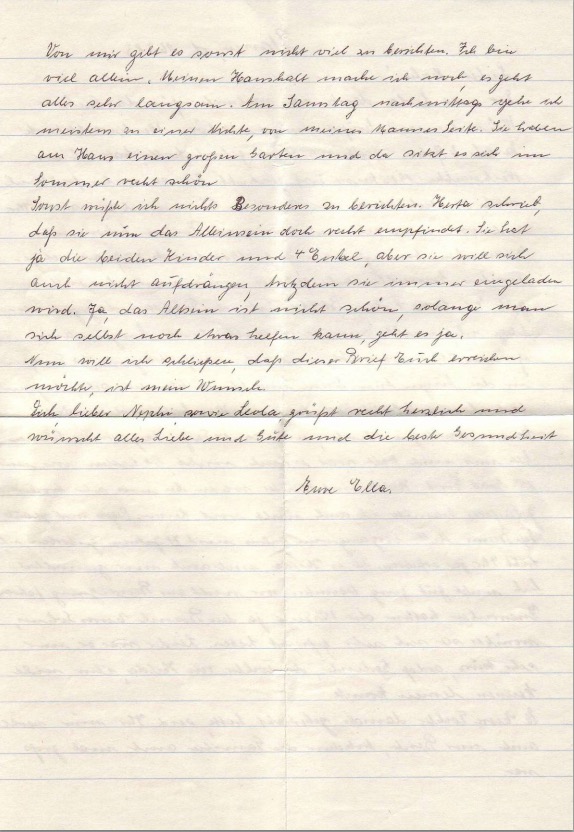 Von mir gibt es sonst nicht viel zu berichten. Ich bin
viel allein. Meinen Haushalt mache ich noch, es geht
alles sehr langsam. Am Samstag nachmittags gehe ich
meistens zu einer Nichte, von meines Mannes Seite. Sie haben
am Haus einen großen Garten und da sitzt es sich im
Sommer recht schön
Sonst wüßte ich nichts Besonderes zu berichten. Herta schrieb,
daß sie nun das Alleinsein doch recht empfindet. Sie hat
ja die beiden Kinder und 4 Enkel, aber sie will sich
auch nicht aufdrängen, trotzdem sie immer eingeladen
wird. Ja, das Altsein ist nicht schön, solange man
sich selbst noch etwas helfen kann, geht es ja.
Nun will ich schließen, daß dieser Brief Euch erreichen
möchte, ist mein Wunsch.
Dich lieber Nephi sowie Leola, grüßt recht herzlich und
wünscht alles Liebe und Gute und die beste Gesundheit
Eure Ella.